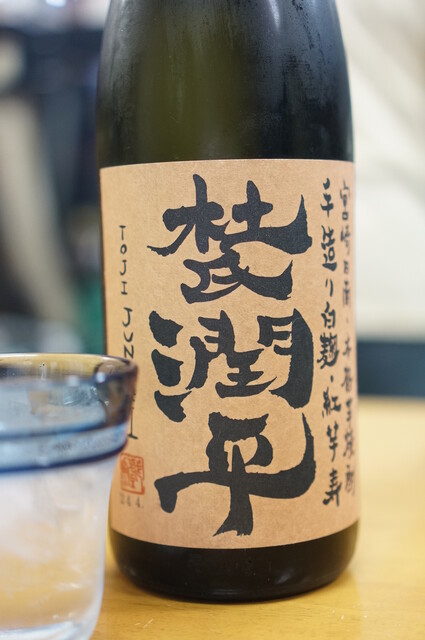 宮崎日南・本格芋焼酎
手造り白麹・紅芋寿
杜氏潤平
TOJI JUN
24.4.